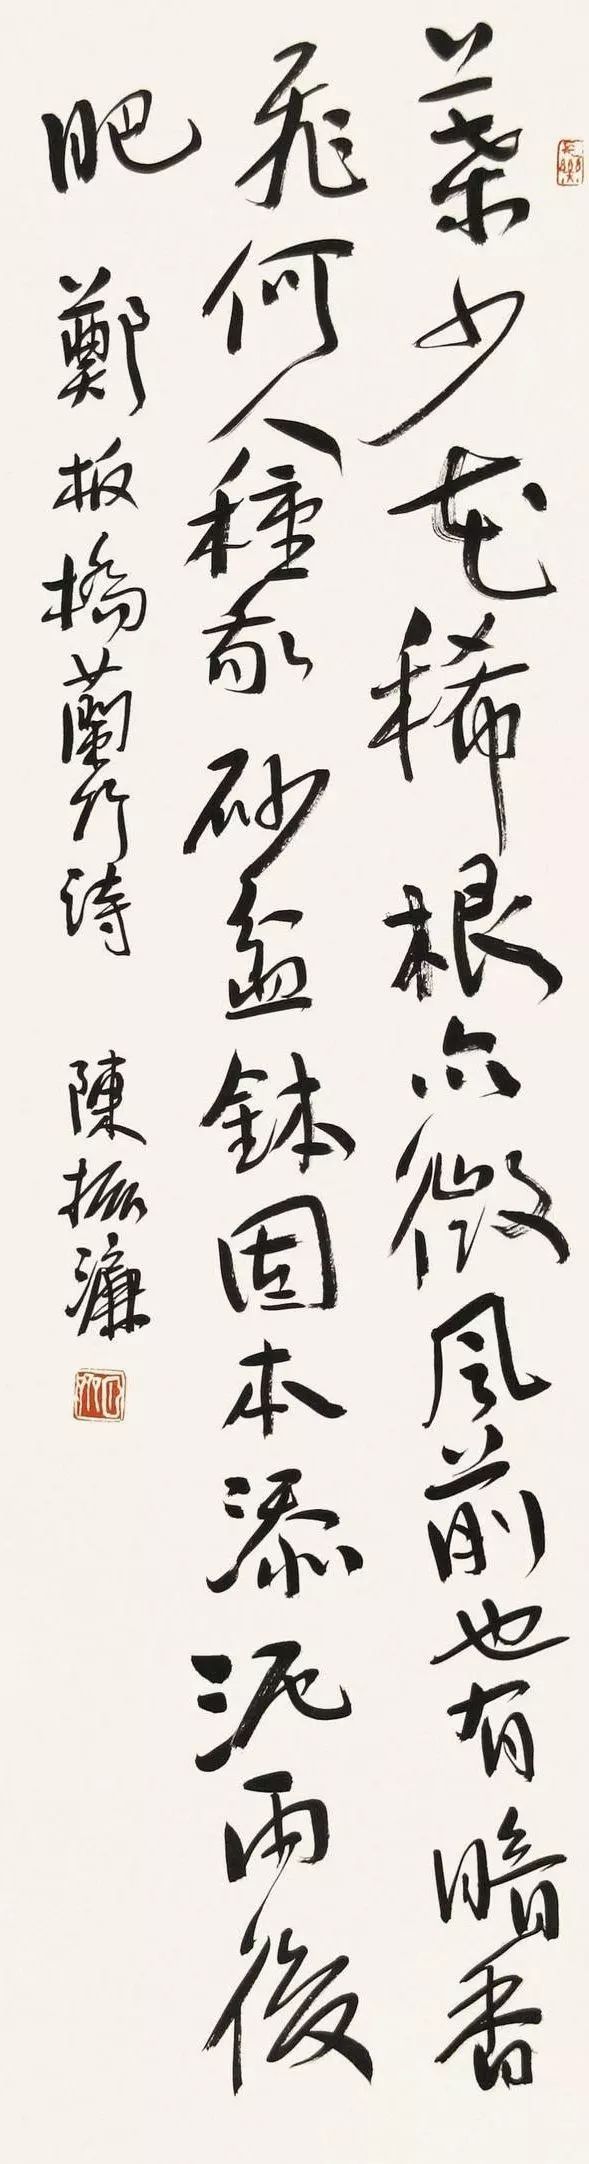 葉少花稀根亦微風前也有暗香
飛何人種取砂盆鉢固本添泥雨後
肥 鄭板橋蘭竹詩 陳振濂